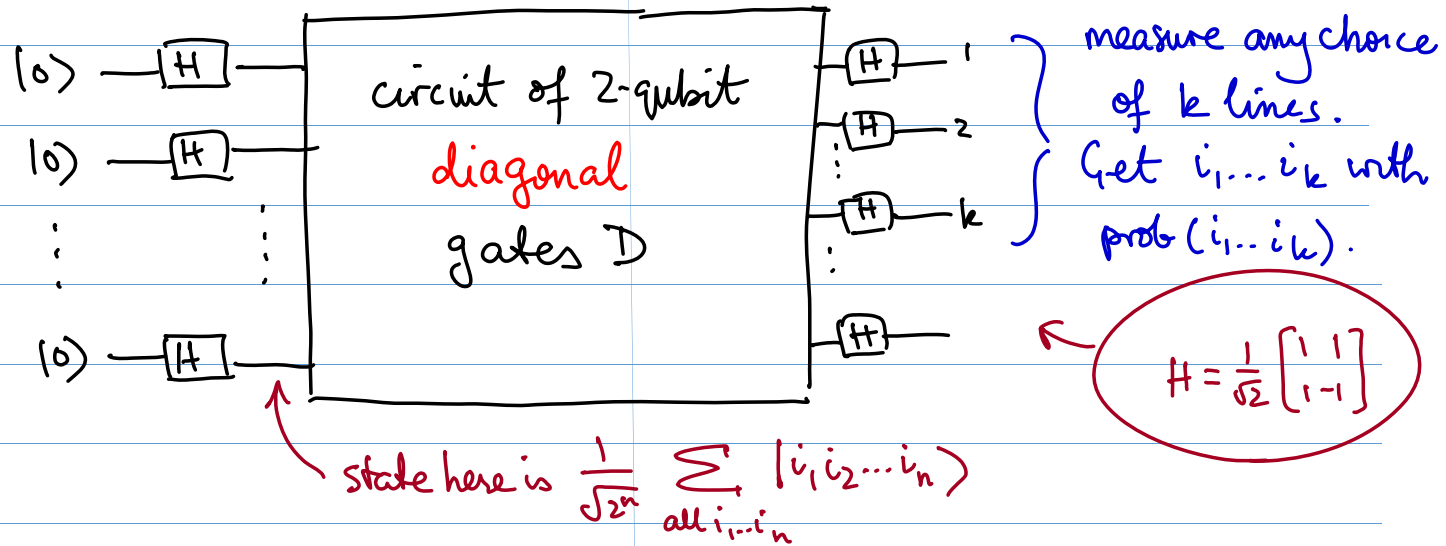 |0⟩ H
circuit of 2-qubit
diagonal
gates D
H 1
H 2
H k
H
measure any choice
of k lines.
Get i₁...iₖ with
prob(i₁..iₖ).
|0⟩ H
|0⟩ H
H = 1/√2 [1 1
1 -1]
state here is 1/√2ⁿ Σ |i₁i₂...iₙ⟩
all i₁...iₙ